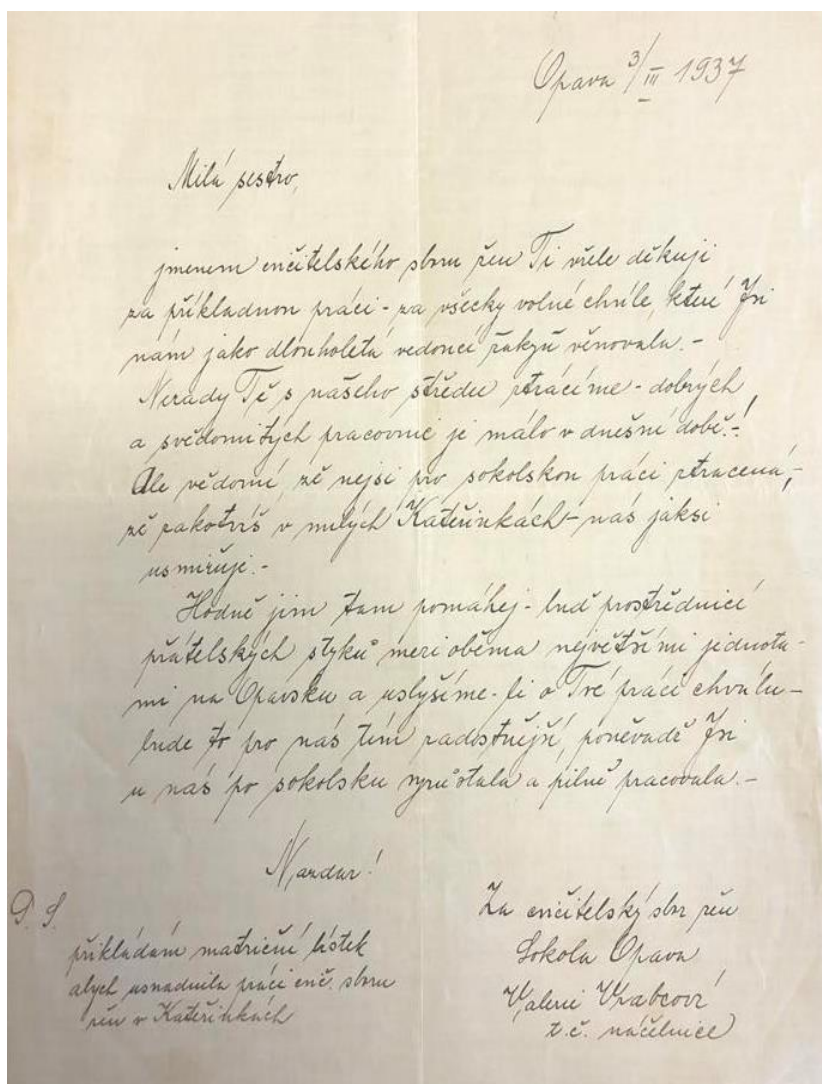 Opava 3/III 1937
Milá sestro,
jmenem cvičitelského sboru žen Ti vřele děkuji
za příkladnou práci - za všecky volné chvíle, které Jsi
nám jako dlouholetá vedoucí žákyň věnovala. -
Nerady Tě s našeho středu ztrácíme - dobrých
a svědomitých pracovnic je málo v dnešní době. -!
Ale vědomí, že nejsi pro sokolskou práci ztracená, -
že zakotvíš v milých Kateřinkách - nás jaksi
usmiřuje. -
Hodně jim tam pomáhej - buď prostřednicí
přátelských styků mezi oběma největšími jednota-
mi na Opavsku a uslyšíme-li o Tvé práci chválu -
bude to pro nás tím radostnější, poněvadž Jsi
u nás po sokolsku vyrůstala a pilně pracovala. -
Nazdar!
P. S.
přikládám matriční lístek
abych usnadnila práci cvič. sboru
žen v Kateřinkách
Za cvičitelský sbor žen
Sokola Opava
Valerie Vrabcová
t.č. náčelnice